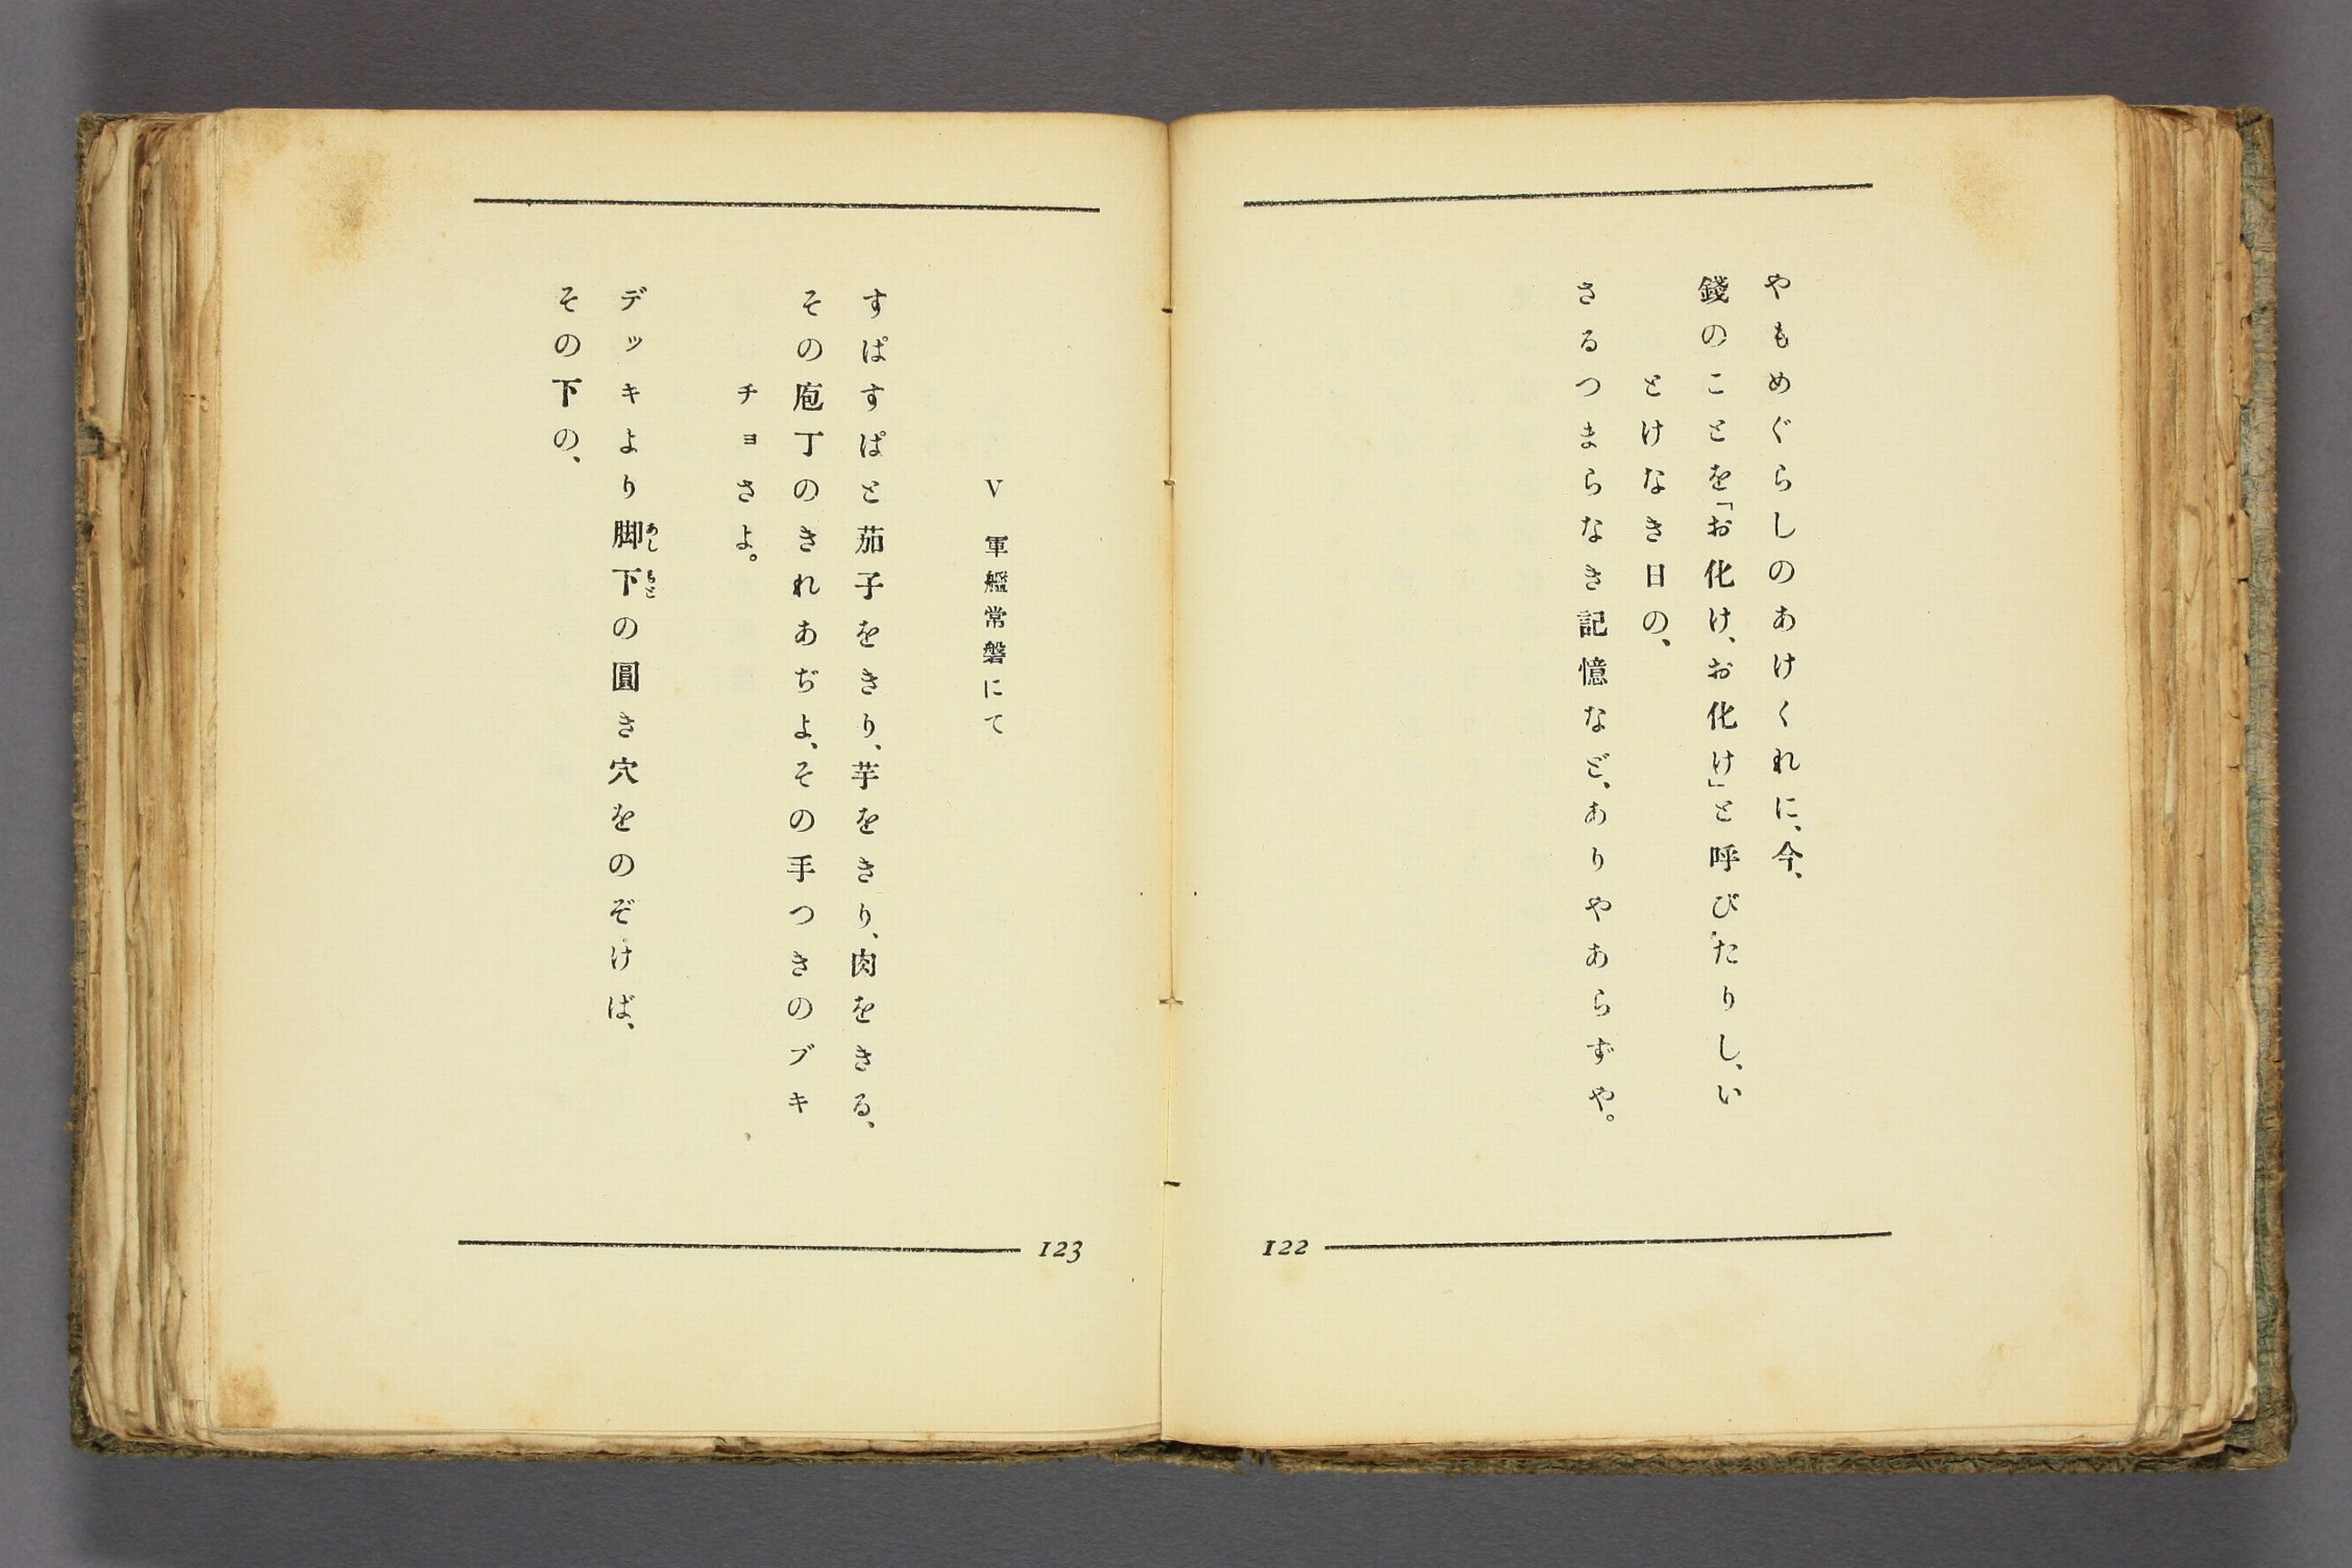 やもめぐらしのあけくれに、今、
錢のことを「お化け、お化け」と呼びたりし、い
とけなき日の、
さるつまらなき記憶など、ありやあらずや。
122
V 軍艦常磐にて
すぱすぱと茄子をきり、芋をきり、肉をきる、
その庖丁のきれあぢよ、その手つきのブキ
チョさよ。
デッキより脚下の圓き穴をのぞけば、
あしもと
その下の、
123